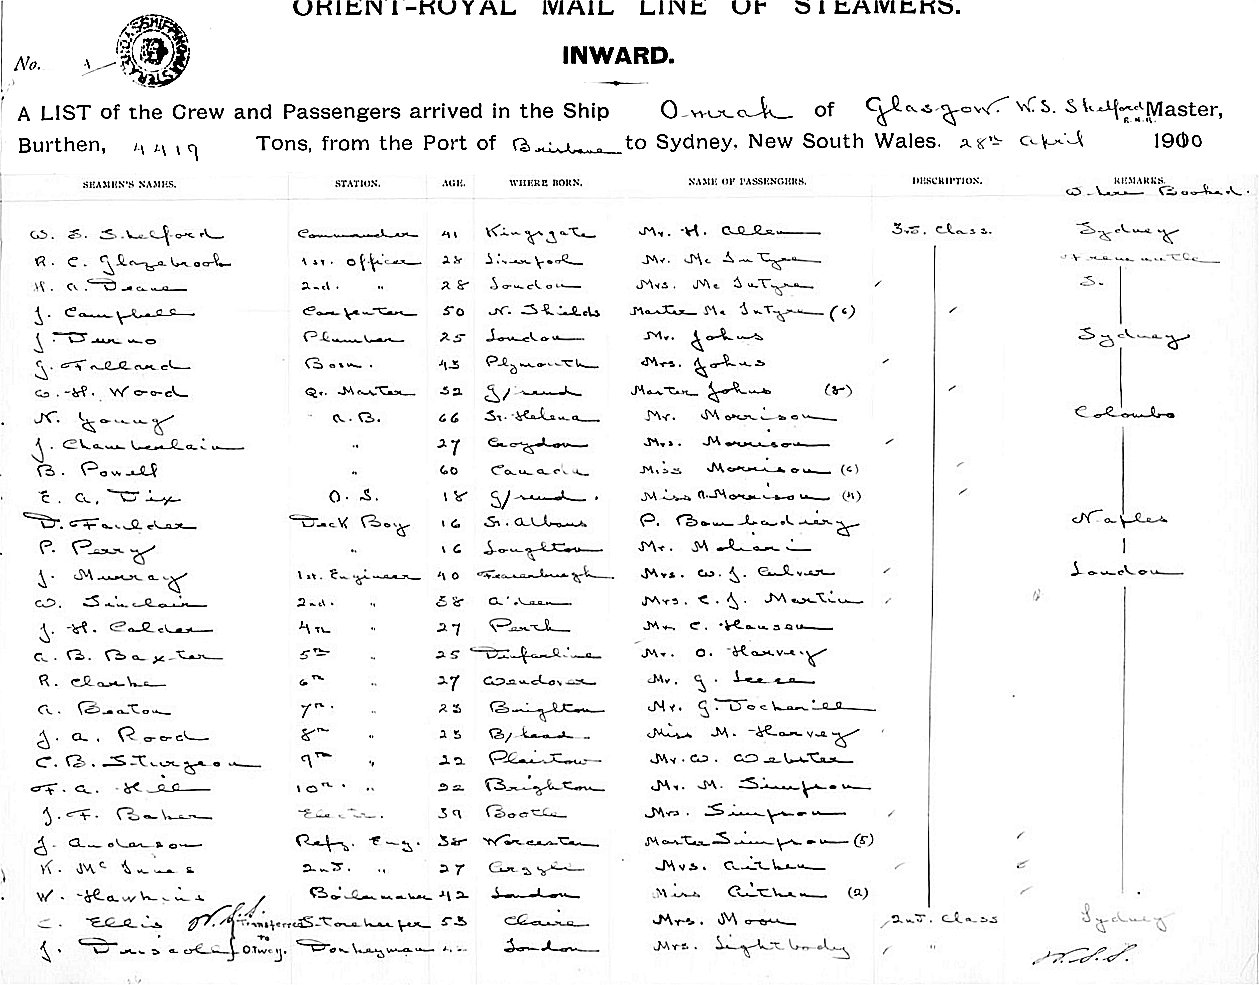 ORIENT-ROYAL MAIL LINE OF STEAMERS.
INWARD.
No.
A LIST of the Crew and Passengers arrived in the Ship Omrah of Glasgow. W.S. Shelford R.N.R. Master,
Burthen, 4419 Tons, from the Port of Brisbane to Sydney, New South Wales. 28th April 1900
SEAMEN'S NAMES. STATION. AGE. WHERE BORN. NAME OF PASSENGERS. DESCRIPTION. REMARKS.
Where Booked.
W. S. Shelford Commander 41 Kingsgate Mr. H. Allen 3rd. Class. Sydney
R. C. Glazebrook 1st. Officer 28 Liverpool Mr. Mc Intyre Fremantle
H. A. Deane 2nd. " 28 London Mrs. Mc Intyre S.
J. Campbell Carpenter 50 N. Shields Master Mc Intyre (6)
J. Durno Plumber 25 London Mr. Johns Sydney
J. Falland Bosn. 43 Plymouth Mrs. Johns
W. H. Wood Qr. Master 52 G/send Master Johns (8)
N. Young A.B. 66 St. Helena Mr. Morrison Colombo
J. Chamberlain " 27 Croydon Mrs. Morrison
B. Powell " 60 Canada Miss Morrison (6)
E. A. Dix O. S. 18 G/send. Miss Morrison (4)
D. Faulder Deck Boy 16 St. Albans P. Naples
P. Perry " 16 Loughton Mr. Moliari
J. Murray 1st. Engineer 40 Mrs. W. J. Culver London
W. Sinclair 2nd. " 38 A'deen Mrs. C. J. Martin
J. H. Calder 4th " 27 Perth Mr. C. Hansen
A. B. Baxter 5th " 25 Mr. O. Harvey
R. Clarke 6th " 27 Wendover Mr. G. Leese
A. Beaton 7th. " 23 Brighton Mr. G.
J. A. Rood 8th " 23 B/head. Miss M. Harvey
C. B. Sturgeon 9th " 22 Plaistow Mr. W. Webster
F. A. Hill 10th. " 22 Brighton Mr. M. Simpson
J. F. Baker Electr. 39 Bootle Mrs. Simpson
J. Anderson Refg. Eng. 38 Worcester Master Simpson (5)
K. Mc Innes 2nd. " 27 Argyle Mrs. Aitken
W. Hawkins Boilermaker 42 London Miss Aitken (2)
C. Ellis W.S.S. Transferred Storekeeper 53 Claire Mrs. Moon 2nd. Class Sydney
J. Driscoll to Otway. Donkeyman London Mrs. Lightbody "
W.S.S.